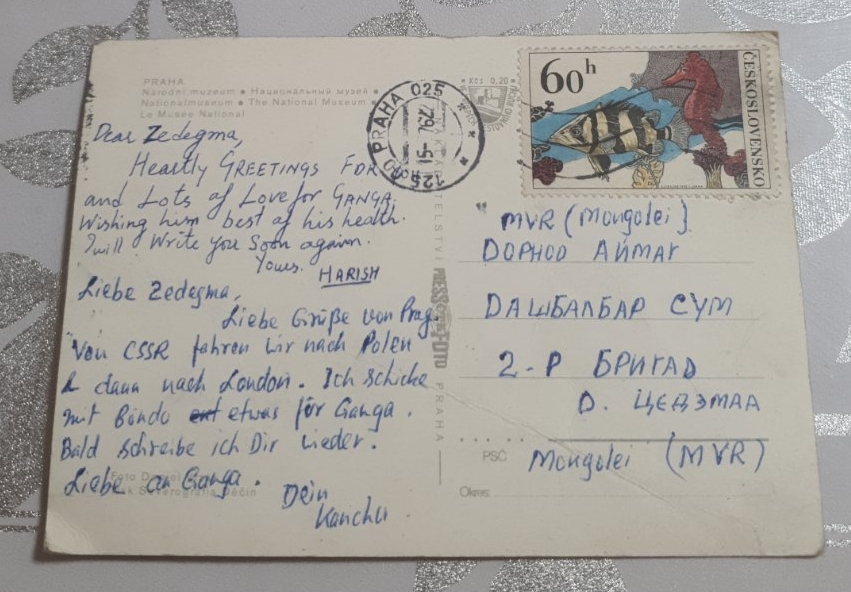 PRAHA
Národní muzeum • Национальный музей •
Nationalmuseum • The National Museum •
Le Musée National
Dear Zedegma,
Heartly GREETINGS FOR
and Lots of Love for GANGA.
Wishing him best of his health.
I will Write you Soon again.
Yours. HARISH
Liebe Zedegma,
Liebe Grüße von Prag.
Von CSSR fahren wir nach Polen
& dann nach London. Ich schicke
mit Bindu etwas für Ganga.
Bald schreibe ich Dir wieder.
Liebe an Ganga.
Dein
Kanchu
Foto
Severografia Děčín
PRAHA 025
Kčs 0,20
PRESSFOTO
PRAHA
60h
ČESKOSLOVENSKO
MVR (Mongolei)
ДОРНОД АЙМАГ
DАШБАЛБАР СУМ
2-Р БРИГАD
D. ЦЕДЭМАА
PSČ
Mongolei (MVR)
Okres